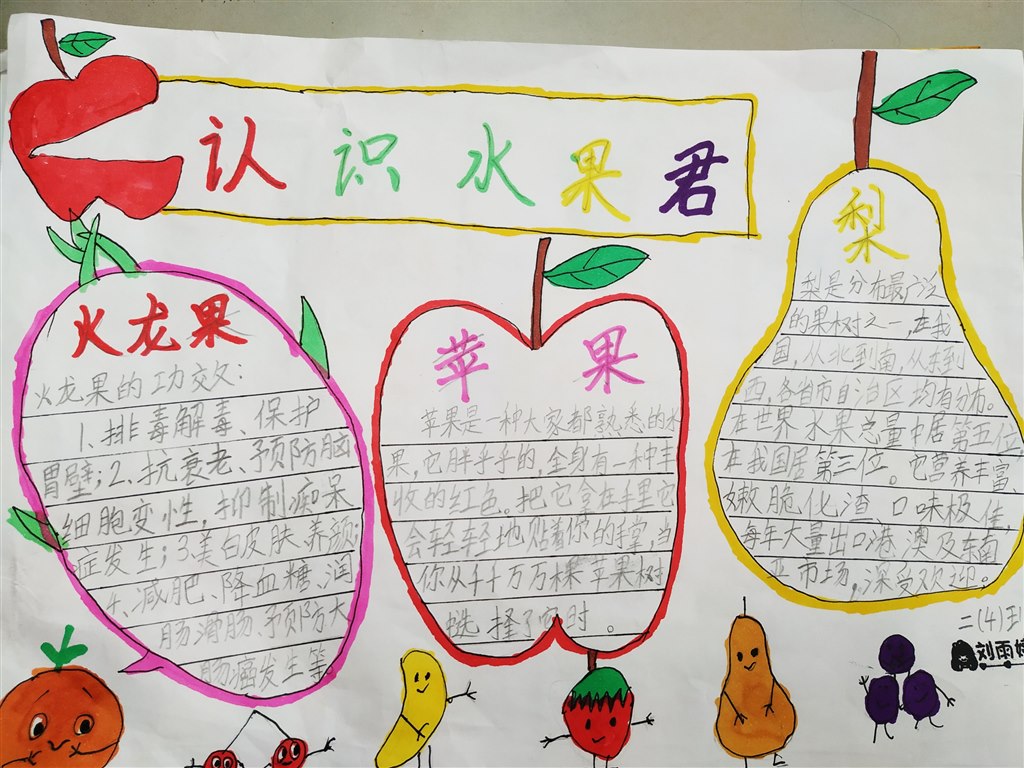 认识水果君
火龙果
火龙果的功效:
1、排毒解毒、保护
胃壁;2、抗衰老、预防脑
细胞变性,抑制痴呆
症发生;3、美白皮肤、养颜;
4、减肥、降血糖、润
肠滑肠、预防大
肠癌发生等。
苹果
苹果是一种大家都熟悉的水
果,它胖乎乎的,全身有一种丰
收的红色。把它拿在手里它
会轻轻地贴着你的手掌,当
你从千千万万棵苹果树
挑择了它时。
梨
梨是分布最广泛
的果树之一,在我
国,从北到南,从东到
西,各省市自治区均有分布。
在世界水果总量中居第五位
在我国居第三位。它营养丰富、
嫩脆化渣口味极佳,
每年大量出口港、澳及东南
亚市场,深受欢迎。
二(4)班
刘雨